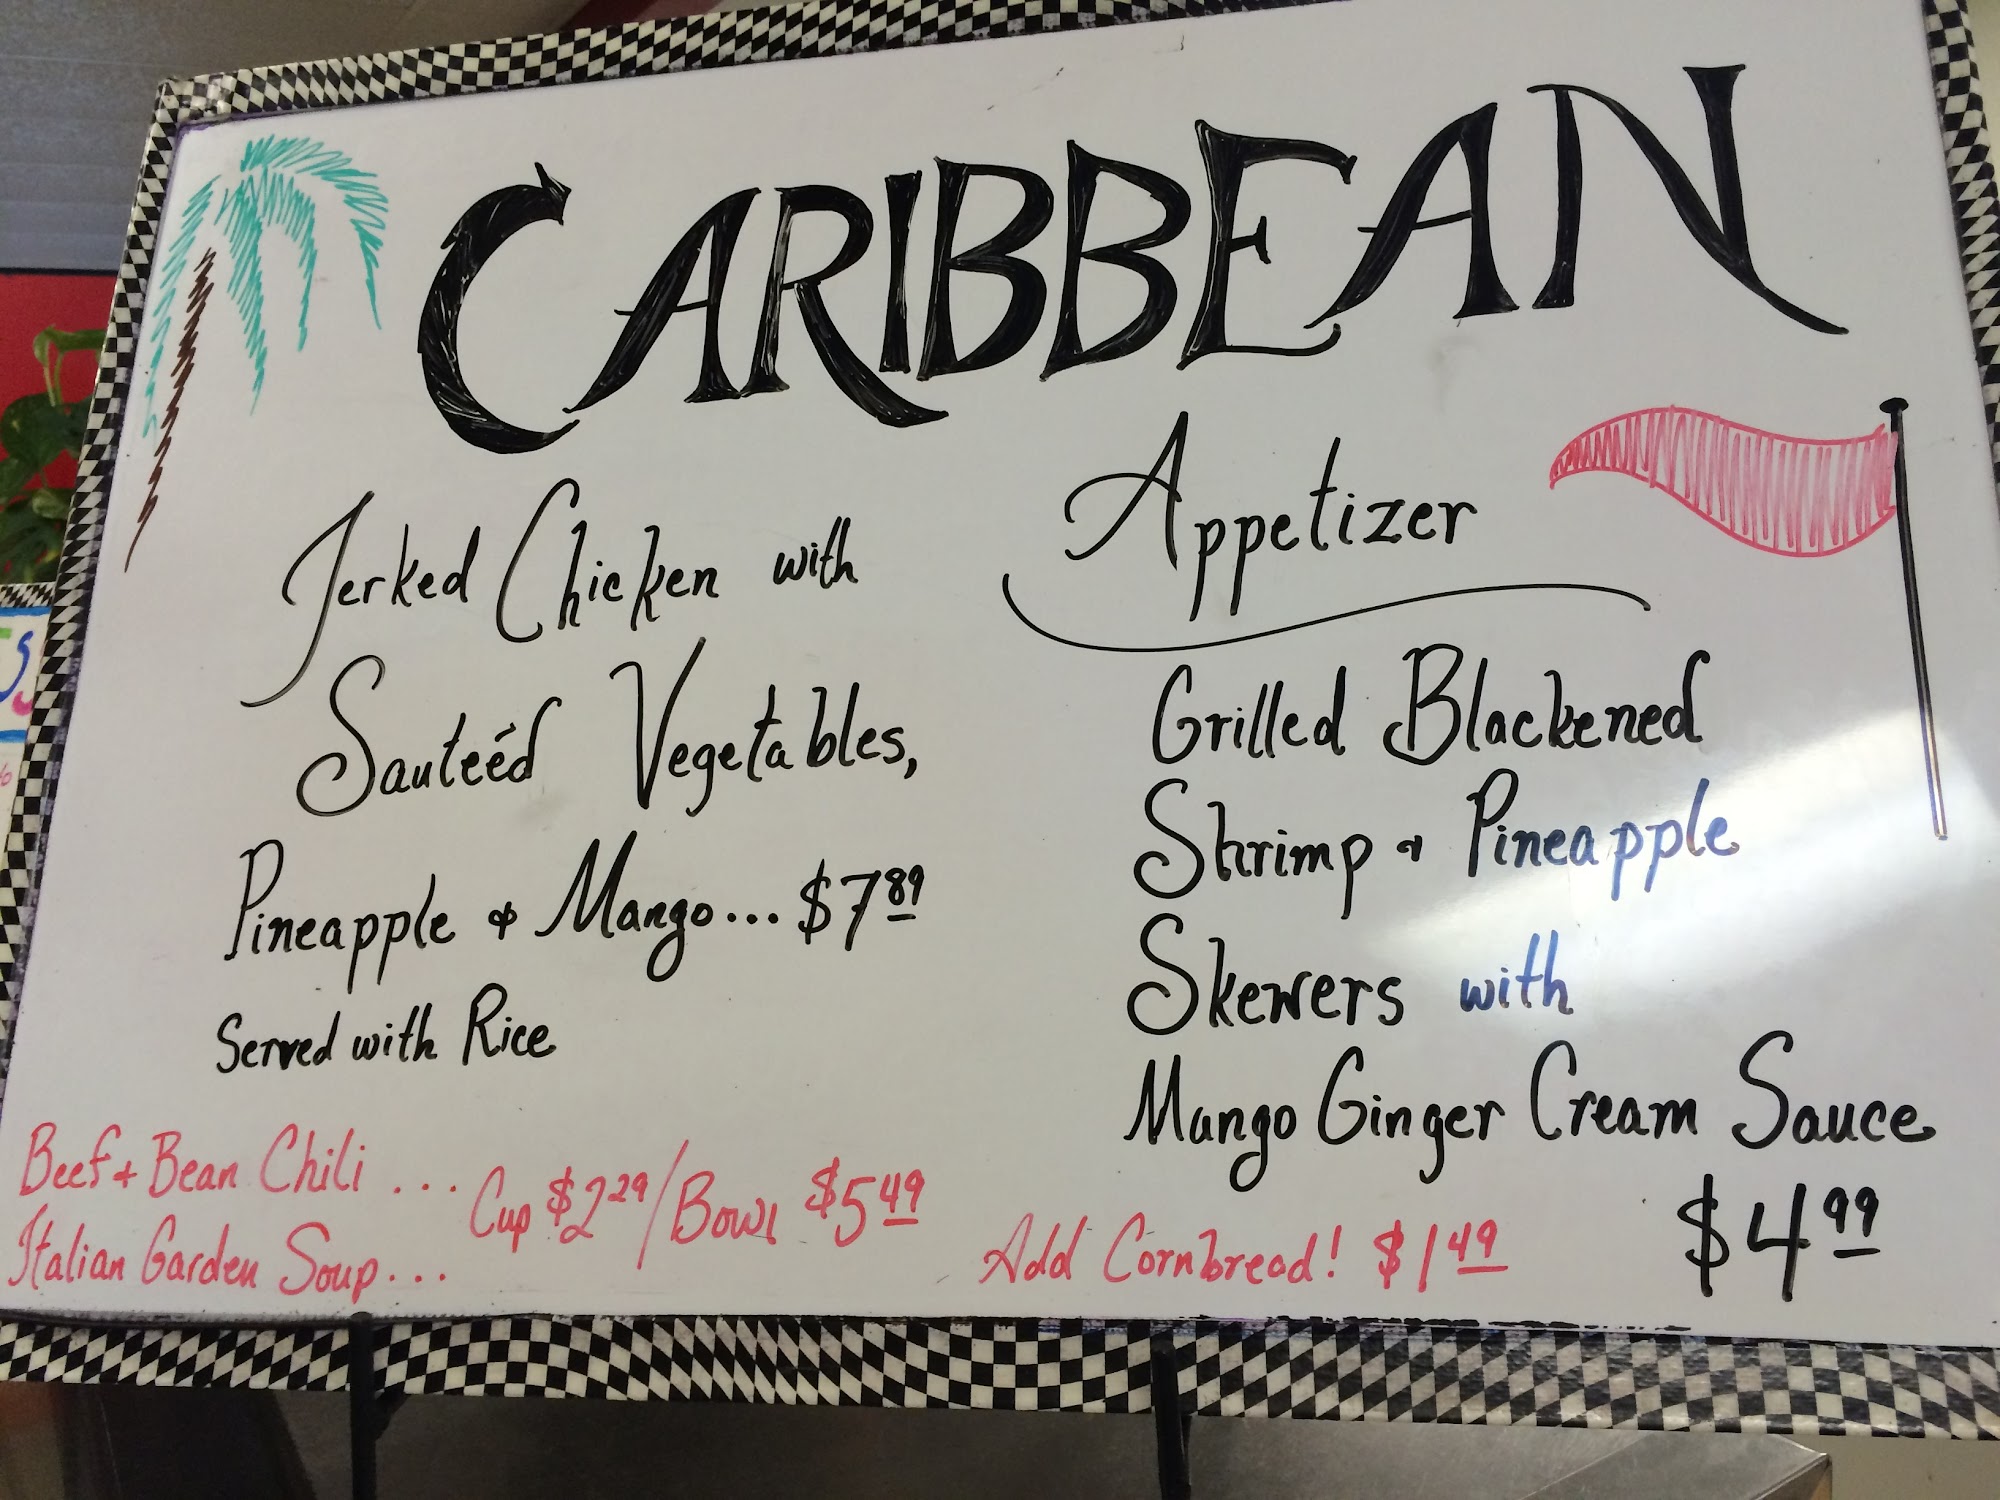 CARIBBEAN
Jerked Chicken with
Sauteéd Vegetables,
Pineapple & Mango... $7.89
Served with Rice
Appetizer
Grilled Blackened
Shrimp & Pineapple
Skewers with
Mango Ginger Cream Sauce
$4.99
Beef & Bean Chili ...
Italian Garden Soup...
Cup $2.29/Bowl $5.49
Add Cornbread! $1.49